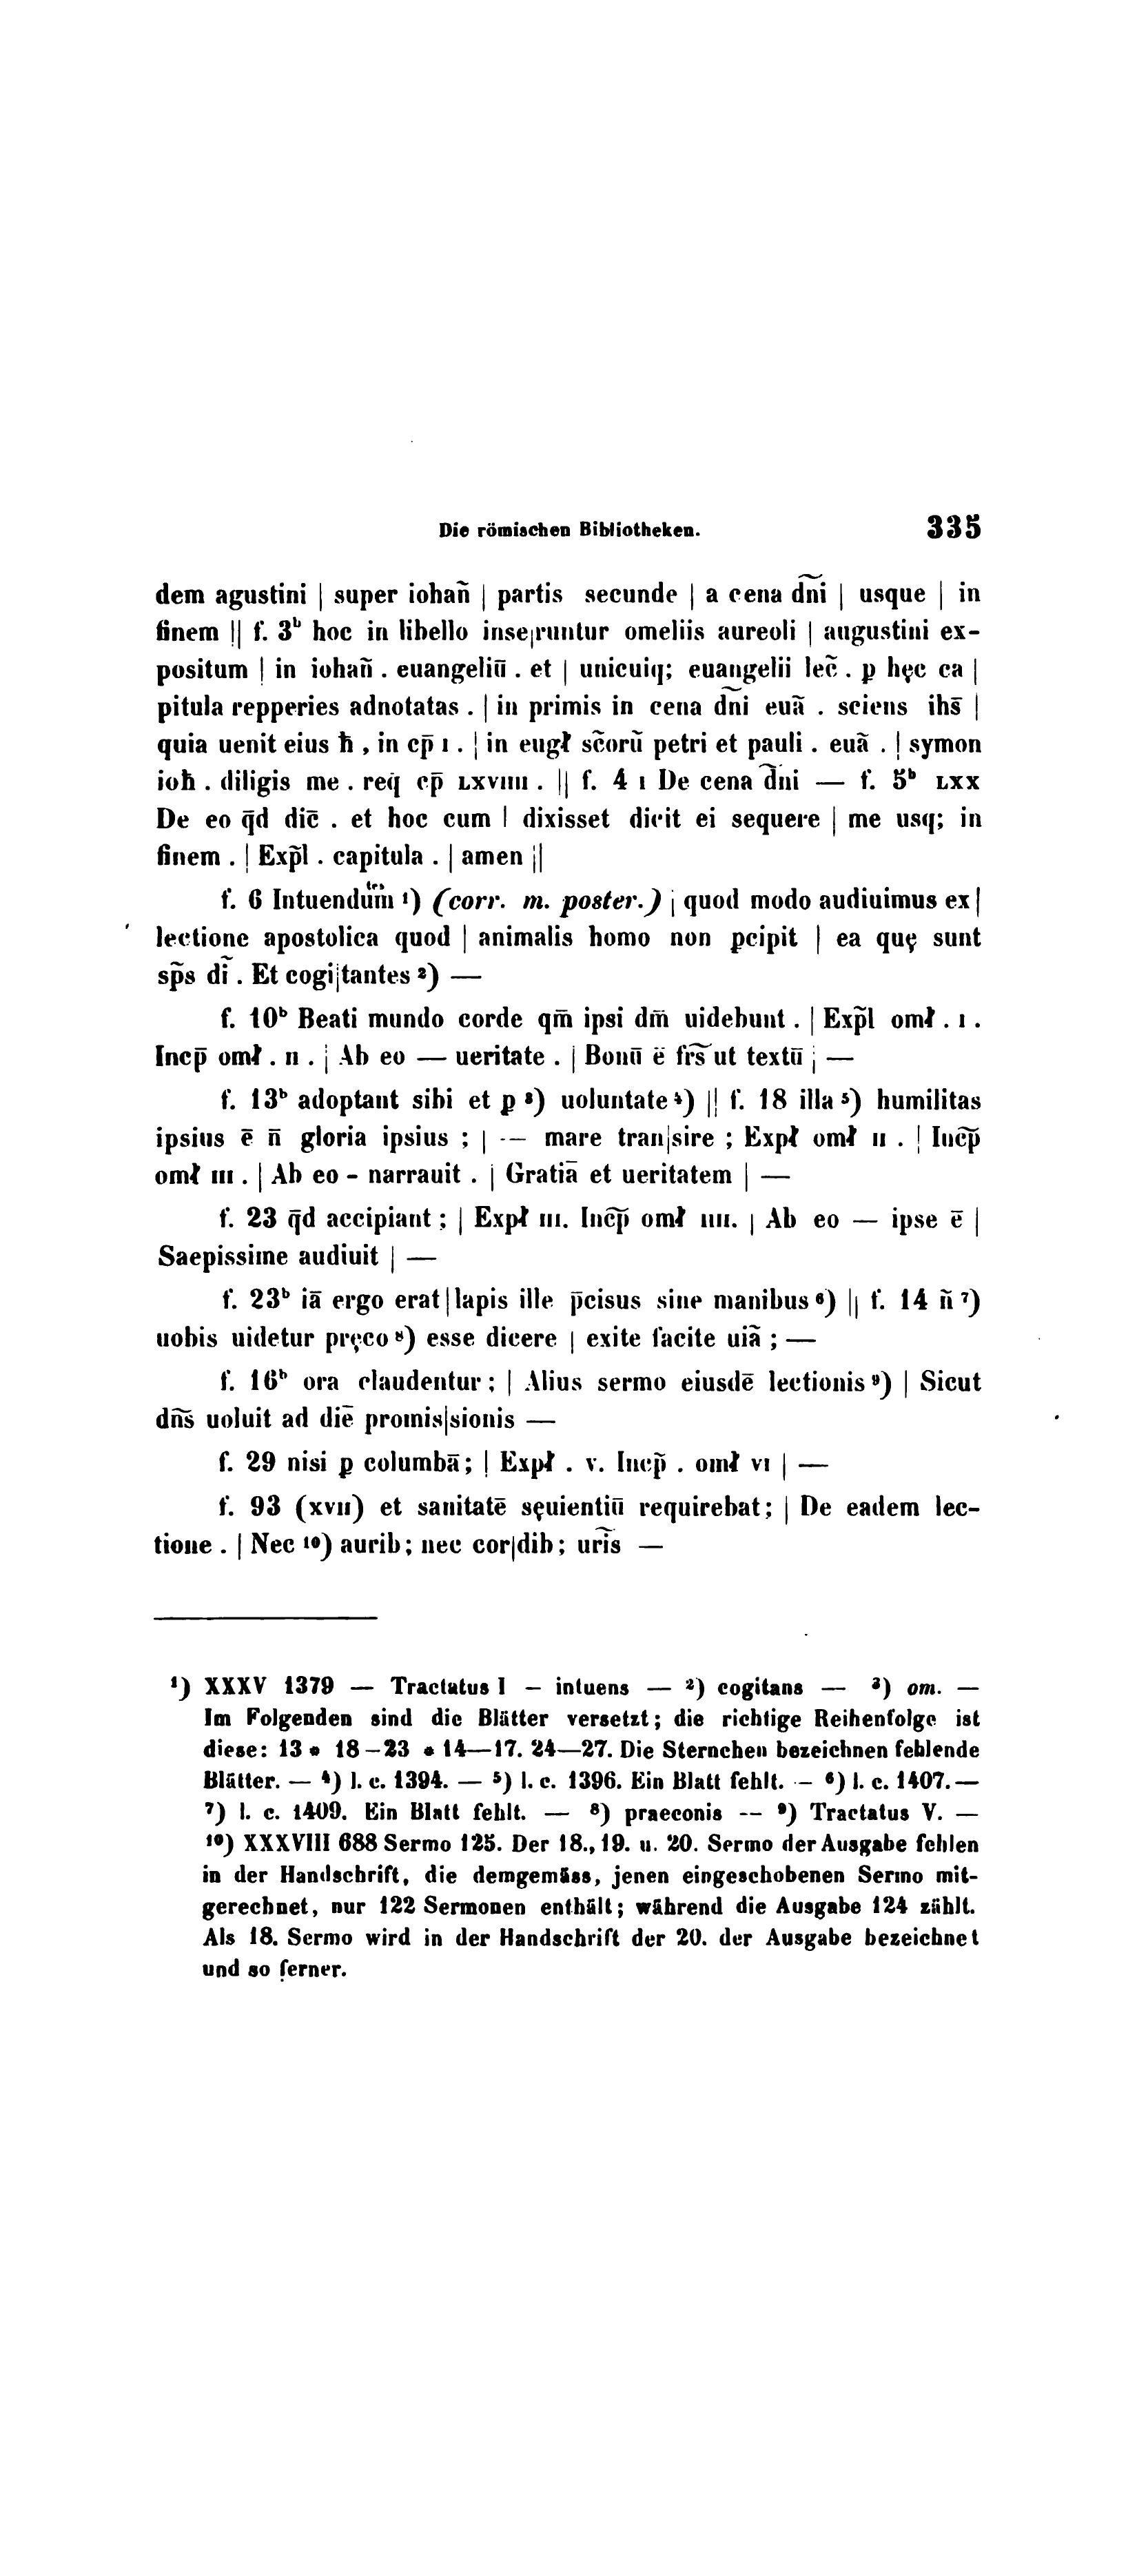 Die römischen Bibliotheken. 335
dem agustini | super iohañ | partis secunde | a cena dn͂i | usque | in
finem || f. 3ᵇ hoc in libello inse|runtur omeliis aureoli | augustini ex-
positum | in iohañ . euangeliū . et | unicuiq; euangelii lec̃ . ꝑ hęc ca |
pitula repperies adnotatas . | in primis in cena dn͂i euã . sciens ihs̄ |
quia uenit eius ħ , in cp̄ ı . | in eugł sc̃orũ petri et pauli . euã . | symon
ioħ . diligis me . req̇ cp̄ ʟxvıııı . || f. 4 ı De cena dn͂i — f. 5ᵇ ʟxx
De eo q̄d dic̄ . et hoc cum | dixisset dicit ei sequere | me usq; in
finem . | Exp̃l . capitula . | amen ||
f. 6 Intuendūm̃ ¹) (corr. m. poster.) | quod modo audiuimus ex|
lectione apostolica quod | animalis homo non ꝑcipit | ea quę sunt
sp̃s dı̃ . Et cogi|tantes ²) —
f. 10ᵇ Beati mundo corde qm̄ ipsi dm̄ uidebunt . | Exp̃l omł . ı .
Incp̄ omł . ıı . | Ab eo — ueritate . | Bonū ē fr͂s ut textū | —
f. 13ᵇ adoptant sibi et ꝑ ³) uoluntate ⁴) || f. 18 illa ⁵) humilitas
ipsius ē n̄ gloria ipsius ; | — mare tran|sire ; Expł omł ıı . | Inc͂p
omł ııı . | Ab eo - narrauit . | Gratiā et ueritatem | —
f. 23 q̄d accipiant ; | Expł ııı. Inc͂p omł ıııı. | Ab eo — ipse ē |
Saepissime audiuit | —
f. 23ᵇ iā ergo erat|lapis ille p̄cisus sine manibus ⁶) || f. 14 ñ ⁷)
uobis uidetur pręco ⁸) esse dicere | exite facite uiã ; —
f. 16ᵇ ora claudentur ; | Alius sermo eiusdē lectionis ⁹) | Sicut
dn͂s uoluit ad diē promis|sionis —
f. 29 nisi ꝑ columbā; | Expł . v. Incp̃ . omł vı | —
f. 93 (xvıı) et sanitatē sęuientiū requirebat; | De eadem lec-
tione . | Nec ¹⁰) aurib; nec cor|dib; ur͂is —
¹) XXXV 1379 — Tractatus I – intuens — ²) cogitans — ³) om. —
Im Folgenden sind die Blätter versetzt; die richtige Reihenfolge ist
diese: 13 * 18–23 * 14—17. 24—27. Die Sternchen bezeichnen fehlende
Blätter. — ⁴) l. c. 1394. — ⁵) l. c. 1396. Ein Blatt fehlt. – ⁶) l. c. 1407.—
⁷) l. c. 1409. Ein Blatt fehlt. — ⁸) praeconis -- ⁹) Tractatus V. —
¹⁰) XXXVIII 688 Sermo 125. Der 18., 19. u. 20. Sermo der Ausgabe fehlen
in der Handschrift, die demgemäss, jenen eingeschobenen Sermo mit-
gerechnet, nur 122 Sermonen enthält; während die Ausgabe 124 zählt.
Als 18. Sermo wird in der Handschrift der 20. der Ausgabe bezeichnet
und so ferner.